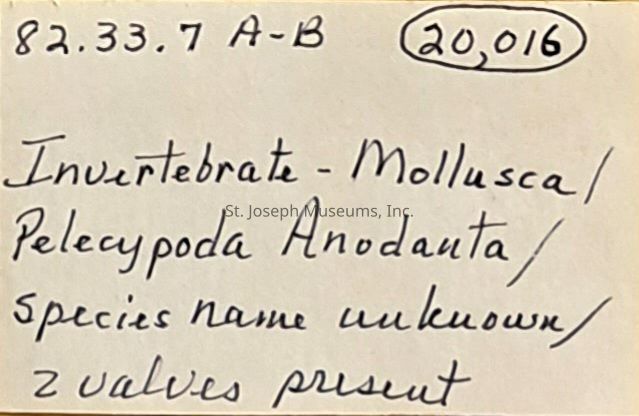 82.33.7 A-B 20,016
Invertebrate - Mollusca/
St. Joseph Museums, Inc.
Pelecypoda Anodanta/
species name unknown/
2 valves present